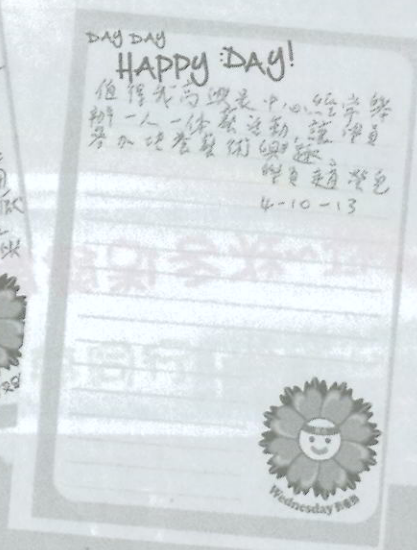 DAY DAY
HAPPY DAY!
值得我高興是中心經常舉
辦一人一体藝活動,讓學員
參加培養藝術興趣
學員
4-10-13
Wednesday